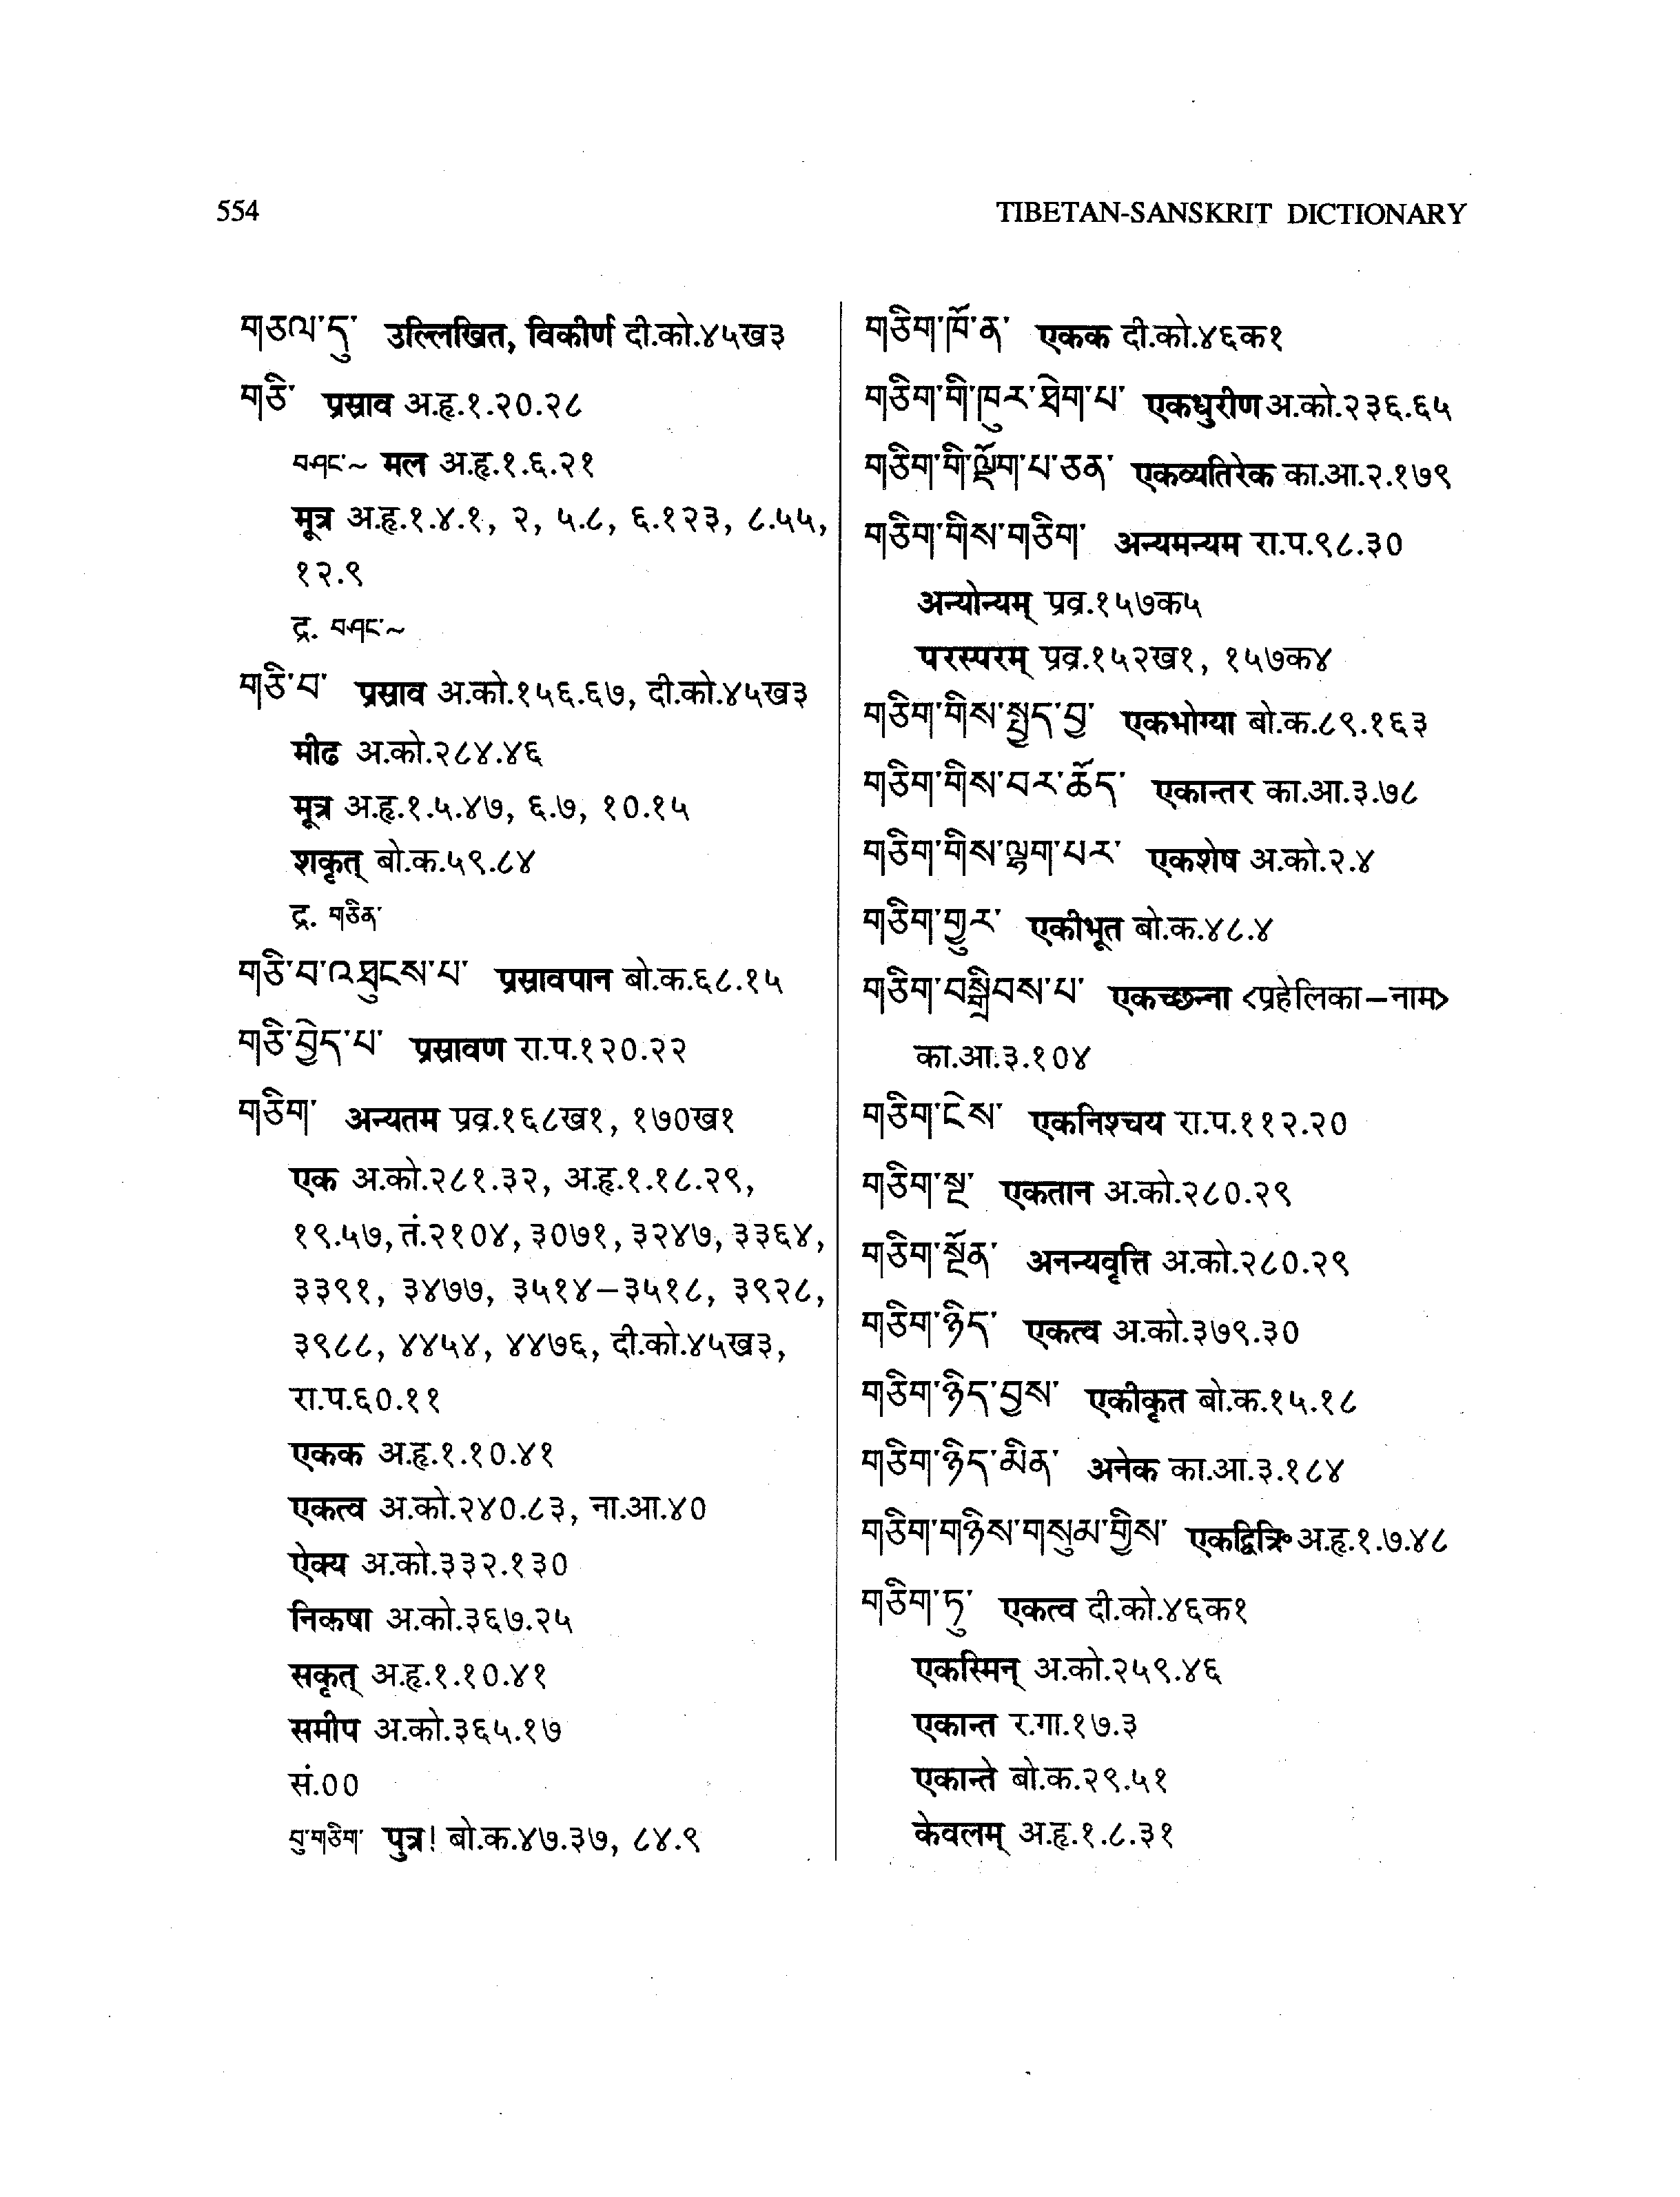 554
TIBETAN-SANSKRIT DICTIONARY
གཅལ་དུ་ उल्लिखित, विकीर्ण दी.को.४५ख३
གཅི་ प्रस्राव अ.हृ.१.२०.२८
བཤང་~ मल अ.हृ.१.६.२१
मूत्र अ.हृ.१.४.१, २, ५.८, ६.१२३, ८.५५,
१२.९
द्र. བཤང་~
གཅི་བ་ प्रस्राव अ.को.१५६.६७, दी.को.४५ख३
मीढ अ.को.२८४.४६
मूत्र अ.हृ.१.५.४७, ६.७, १०.१५
शकृत् बो.क.५९.८४
द्र. གཅིན་
གཅི་བ་འཐུངས་པ་ प्रस्रावपान बो.क.६८.१५
གཅི་བྱེད་པ་ प्रस्रावण रा.प.१२०.२२
གཅིག་ अन्यतम प्रव्र.१६८ख१, १७०ख१
एक अ.को.२८१.३२, अ.हृ.१.१८.२९,
१९.५७, तं.२१०४, ३०७१, ३२४७, ३३६४,
३३९१, ३४७७, ३५१४–३५१८, ३९२८,
३९८८, ४४५४, ४४७६, दी.को.४५ख३,
रा.प.६०.११
एकक अ.हृ.१.१०.४१
एकत्व अ.को.२४०.८३, ना.आ.४०
ऐक्य अ.को.३३२.१३०
निकषा अ.को.३६७.२५
सकृत् अ.हृ.१.१०.४१
समीप अ.को.३६५.१७
सं.००
བུ་གཅིག་ पुत्र! बो.क.४७.३७, ८४.९
གཅིག་ཁོ་ན་ एकक दी.को.४६क१
གཅིག་གི་ཁུར་ཐེག་པ་ एकधुरीण अ.को.२३६.६५
གཅིག་གི་ལྡོག་པ་ཅན་ एकव्यतिरेक का.आ.२.१७९
གཅིག་གིས་གཅིག་ अन्यमन्यम रा.प.९८.३०
अन्योन्यम् प्रव्र.१५७क५
परस्परम् प्रव्र.१५२ख१, १५७क४
གཅིག་གིས་སྤྱད་བྱ་ एकभोग्या बो.क.८९.१६३
གཅིག་གིས་བར་ཆོད་ एकान्तर का.आ.३.७८
གཅིག་གིས་ལྷག་པར་ एकशेष अ.को.२.४
གཅིག་གྱུར་ एकीभूत बो.क.४८.४
གཅིག་བསྒྲིབས་པ་ एकच्छन्ना <प्रहेलिका–नाम>
का.आ.३.१०४
གཅིག་ངེས་ एकनिश्चय रा.प.११२.२०
གཅིག་སྔ་ एकतान अ.को.२८०.२९
གཅིག་སྔོན་ अनन्यवृत्ति अ.को.२८०.२९
གཅིག་ཉིད་ एकत्व अ.को.३७९.३०
གཅིག་ཉིད་བྱས་ एकीकृत बो.क.१५.१८
གཅིག་ཉིད་མིན་ अनेक का.आ.३.१८४
གཅིག་གཉིས་གསུམ་གྱིས་ एकद्वित्रि॰ अ.हृ.१.७.४८
གཅིག་ཏུ་ एकत्व दी.को.४६क१
एकस्मिन् अ.को.२५९.४६
एकान्त र.गा.१७.३
एकान्ते बो.क.२९.५१
केवलम् अ.हृ.१.८.३१